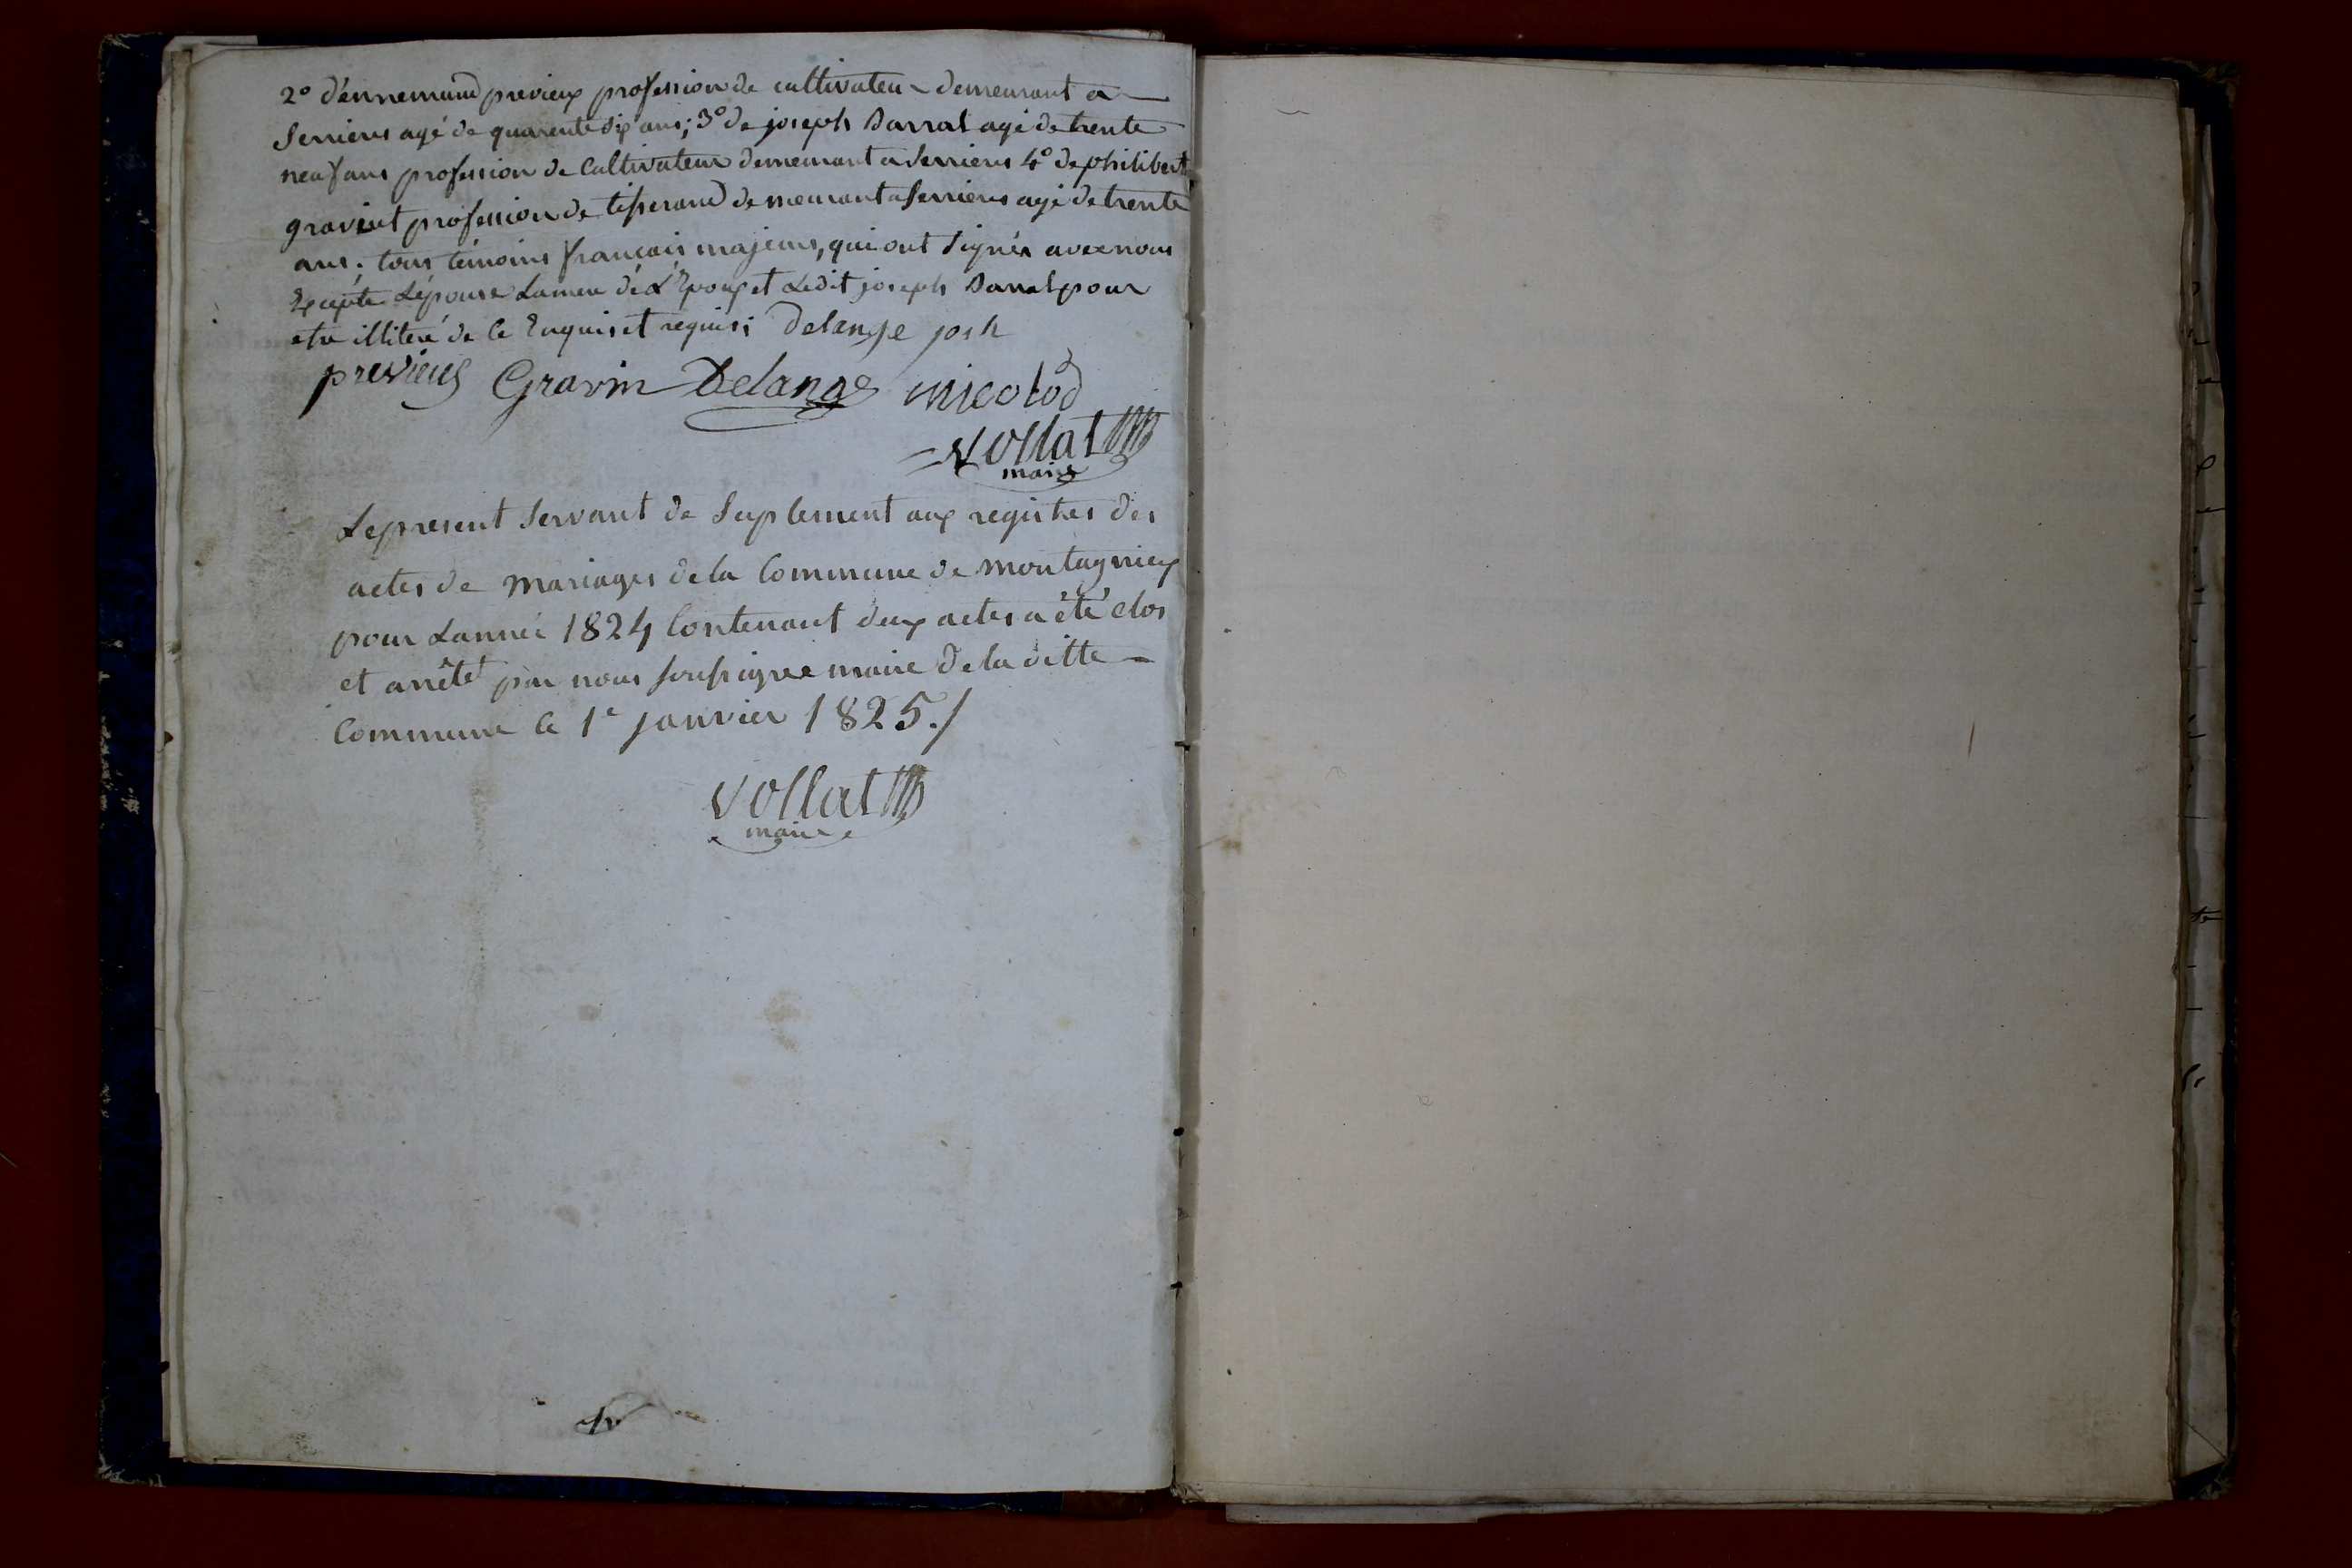 2° d'ennemund previeux profession de cultivateur demeurant a
Serrieres agé de quarente six ans; 3° de joseph Barral agé de trente
neuf ans profession de Cultivateur demeurant a Serrieres 4° de philibert
gravint profession de tisserand demeurant a Serrieres agé de trente
ans. tous témoins français majeurs, qui ont signés avec nous
Excepté L'épouse La mere dé L'Epoux et Ledit joseph Barral pour
etre illiteré de ce Enquis et requis; Delange josh
previeux Gravin Delange nicolod
vollat
maire
Le present Servant de Suplement aux registres des
actes de mariages de la Commune de montagnieux
pour Lannée 1824 Contenant deux actes a été clos
et arrêté par nous soussigné maire de la ditte
Commune le 1er janvier 1825./
vollat
maire